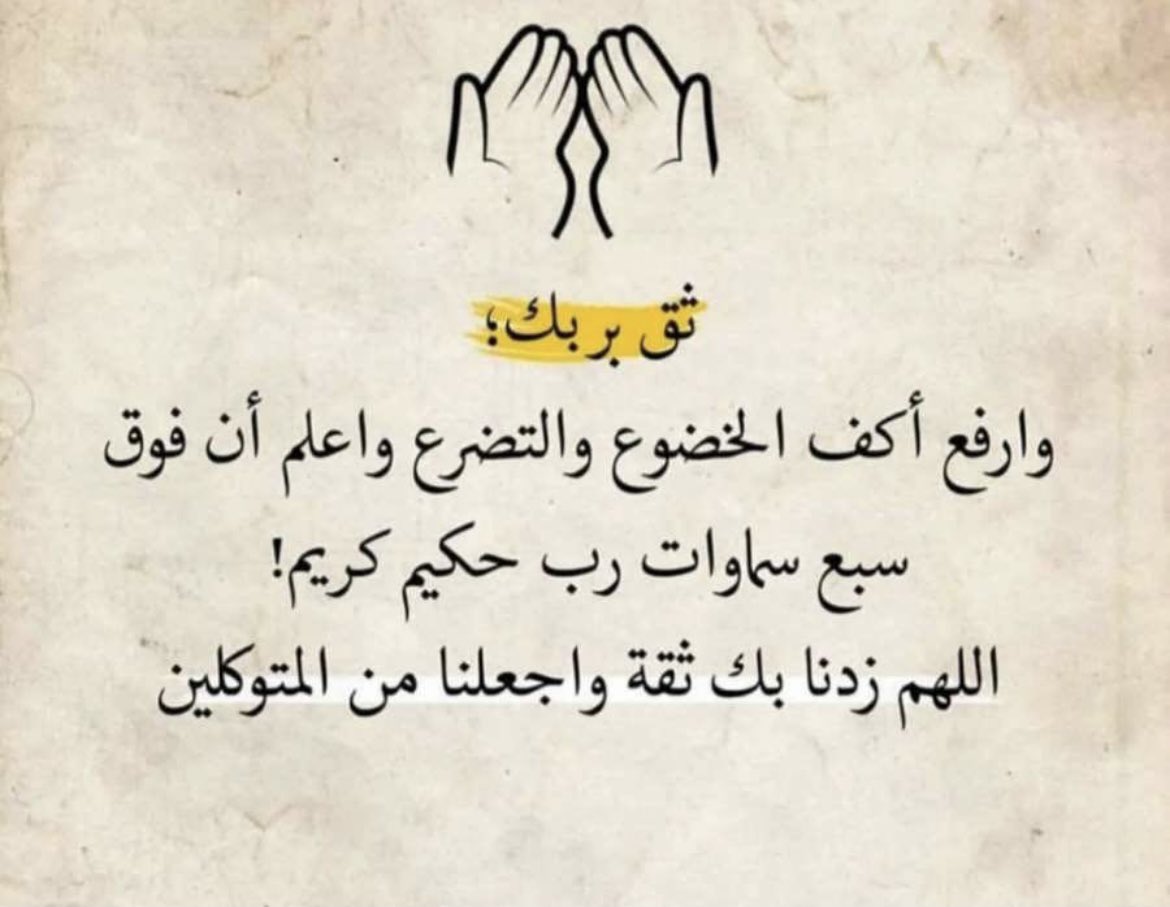 ثق بربك؛
وارفع أكف الخضوع والتضرع واعلم أن فوق
سبع سماوات رب حكيم كريم!
اللهم زدنا بك ثقة واجعلنا من المتوكلين